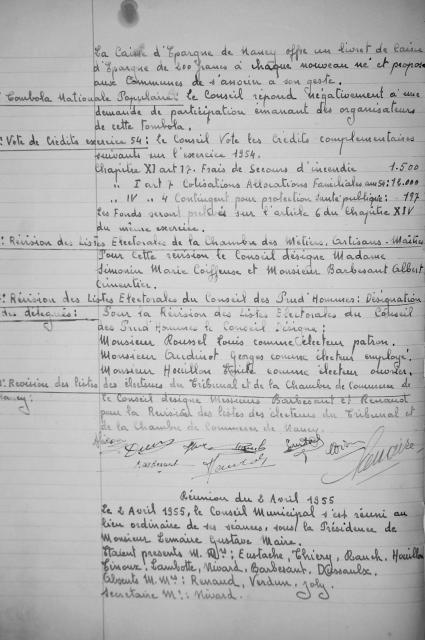 La Caisse d'Epargne de Nancy offre un livret de Caisse
d'Epargne de 200 francs à chaque nouveau né et propose
aux Communes de s'associer à son geste.
Tombola Nationale Populaire: Le Conseil répond négativement à une
demande de participation émanant des organisateurs
de cette tombola.
Vote de Crédits exercice 54: Le Conseil Vote les Crédits complémentaires
suivants sur l'exercice 1954.
Chapitre XI art 17. Frais de Secours d'incendie 1.500
" I art 7 Cotisations Allocations Familiales an 54: 12.000
" IV " 4 Contingent pour protection santé publique: 197
Les Fonds seront prélevés sur l'article 6 du Chapitre XIV
du même exercice.
Révision des Listes Electorales de la Chambre des Métiers. Artisans-Maîtres
Pour cette révision le Conseil désigne Madame
Simonin Marie Coiffeuse et Monsieur Barbesant Albert
Cimentier.
Révision des Listes Electorales du Conseil des Prud'Hommes: Désignation
des délégués: Pour la Révision des Listes Electorales du Conseil
des Prud'Hommes le Conseil désigne:
Monsieur Roussel Louis comme électeur patron.
Monsieur Audinot Georges comme électeur employé.
Monsieur Houillon comme électeur ouvrier.
Revision des listes des électeurs du Tribunal et de la Chambre de Commerce de
Nancy: le Conseil désigne Messieurs Barbesant et Renaud
pour la Révision des listes des électeurs du Tribunal et
de la Chambre de Commerce de Nancy.
Barbesant
Réunion du 2 Avril 1955
Le 2 Avril 1955, le Conseil Municipal s'est réuni au
lieu ordinaire de ses séances, sous la Présidence de
Monsieur Lemaire Gustave Maire.
Etaient présents M. Mrs: Eustache, Thiéry, Rauch, Houillon
Lambotte, Nivard, Barbesant, Dussaulx.
Absents M.Mrs: Renaud, Verdun, Joly.
Secrétaire Mr: Nivard.